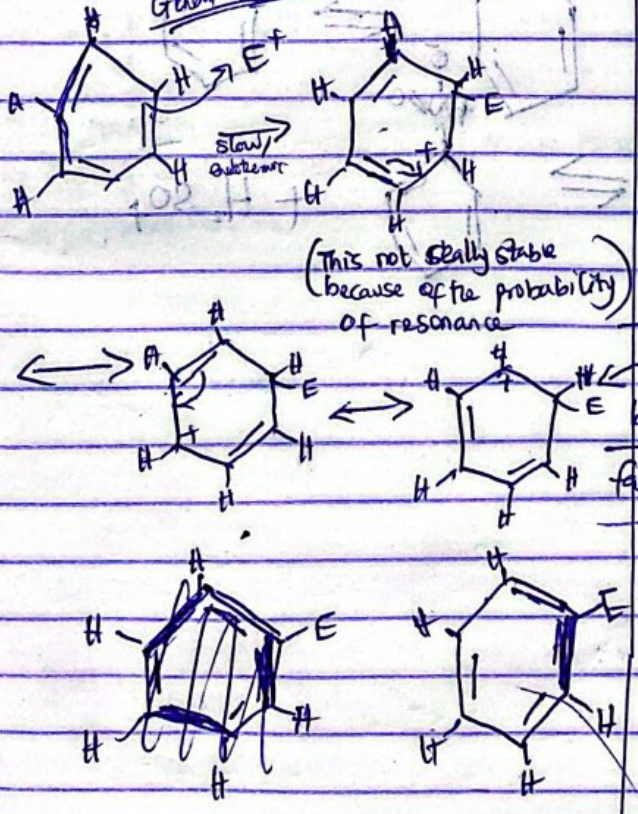 Gene
E+
slow,
H
E
+
+ H2SO4
(This not really stable
because of the probability)
of resonance
H
H
E
H
H
+
H
H
H
+
H
E
H
H
H
fa
H
H
E
H
H
H
H
H
E
H
H
H